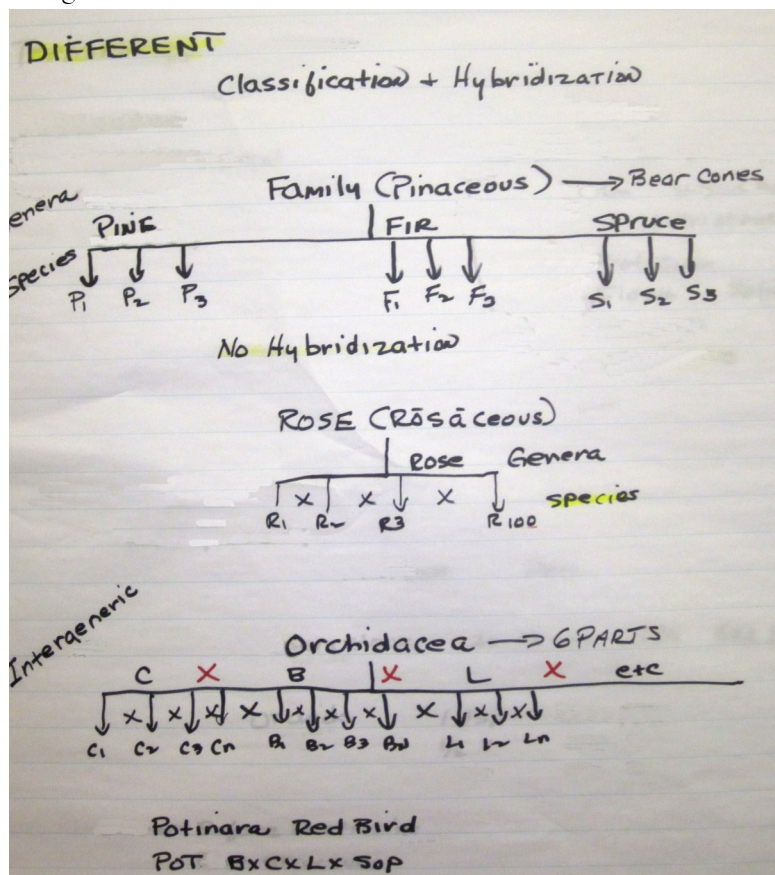 DIFFERENT
Classification + Hybridization
enera
Family (Pinaceous) → Bear Cones
PINE FIR Spruce
Species
P1 P2 P3 F1 F2 F3 S1 S2 S3
No Hybridization
ROSE (Rōsāceous)
Rose Genera
x x x species
R1 R2 R3 R100
Intergeneric
Orchidacea → 6 PARTS
C X B X L X etc
x x x x x x x x x x
C1 C2 C3 Cn B1 B2 B3 Bn L1 L2 Ln
Potinara Red Bird
POT BxCxLx Sop